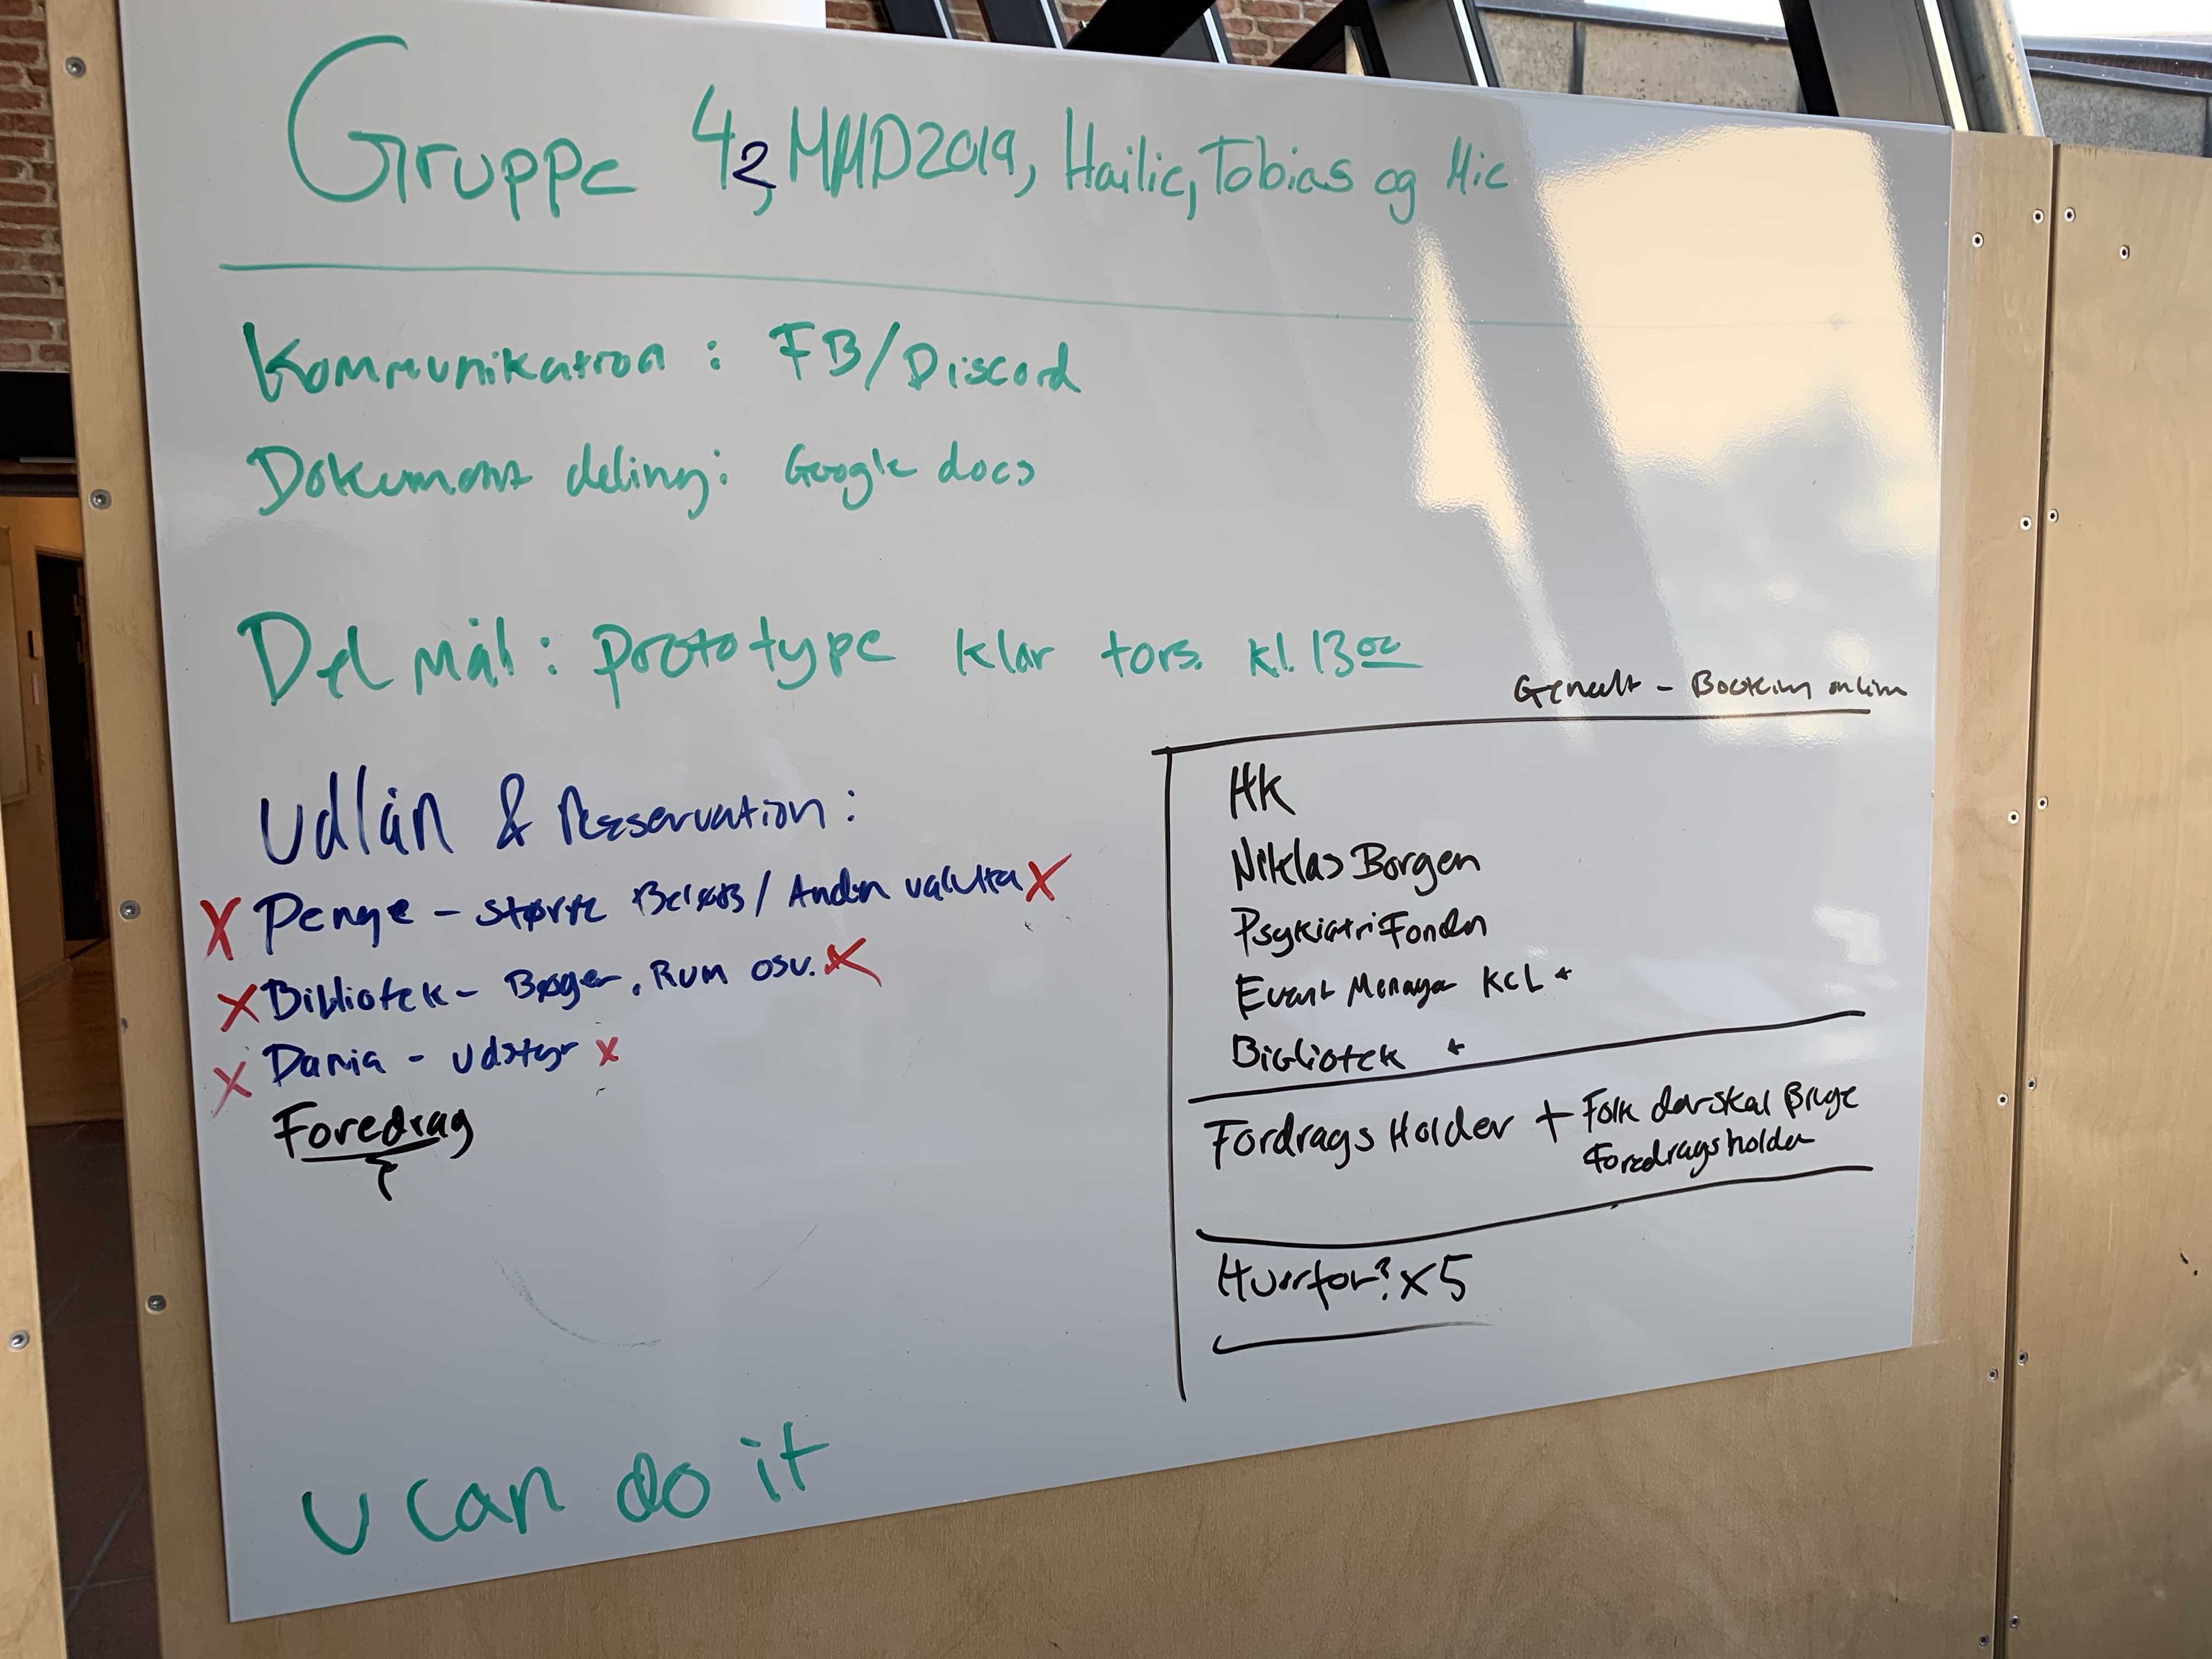 Gruppe 42, MMD2019, Hailie, Tobias og Mie
Kommunikation : FB/Discord
Dokument deling: Google docs
Delmål : prototype klar tors. kl. 13 00
Udlån & Reservation :
X Penge - større Beløb / Anden valuta X
X Bibliotek - Bøger, Rum osv. X
X Dania - Udstyr X
Foredrag
Generelt - Booking online
HK
Niklas Borgen
PsykiatriFonden
Event Manager KCL *
Bibliotek *
Fordrags Holder + Folk der skal Bruge
Foredragsholder
Hvorfor? x5
U can do it